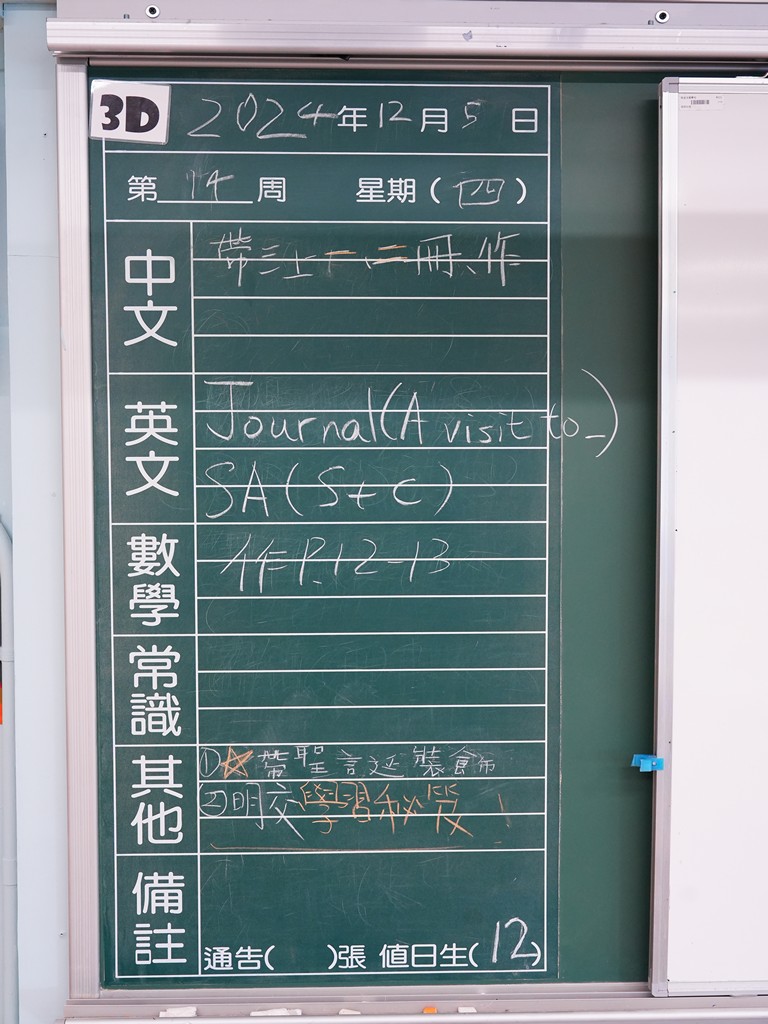 3D 2024年12月5日
第14周 星期(四)
中文 帶三上一、二冊、作
英文 Journal(A visit to_)
SA(S+C)
數學 作P.12-13
常識
其他 ①☆帶聖言延裝飾
②明交學習秘笈!
備註 通告( )張 值日生(12)